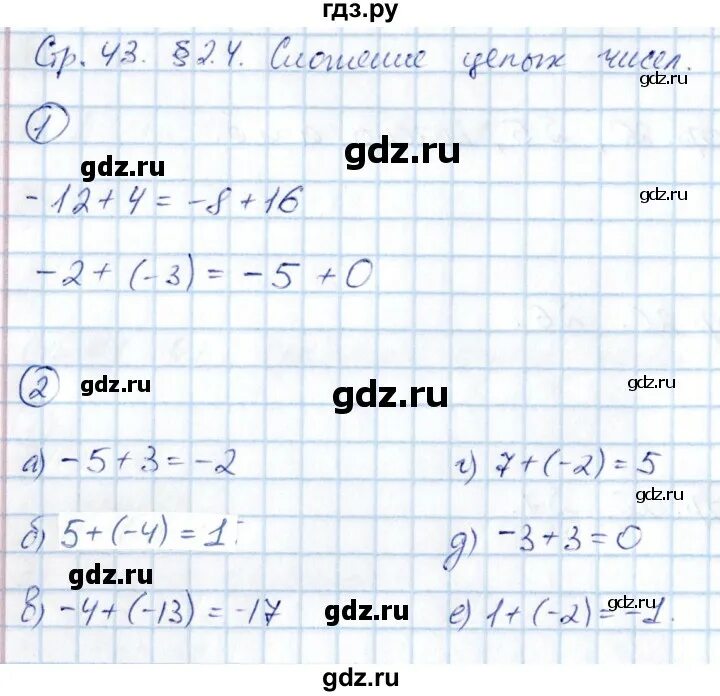 гдз.ру
Стр. 43. § 2.4. Сложение целых чисел.
gdz.ru
1
gdz.ru
gdz.ru
-12 + 4 = -8 + 16
gdz.ru
-2 + (-3) = -5 + 0
2
gdz.ru
gdz.ru
gdz.ru
а) -5 + 3 = -2
г) 7 + (-2) = 5
gdz.ru
б) 5 + (-4) = 1.
д) -3 + 3 = 0
gdz.ru
в) -4 + (-13) = -17
gdz.ru
е) 1 + (-2) = -1.
gdz.ru
gdz.ru